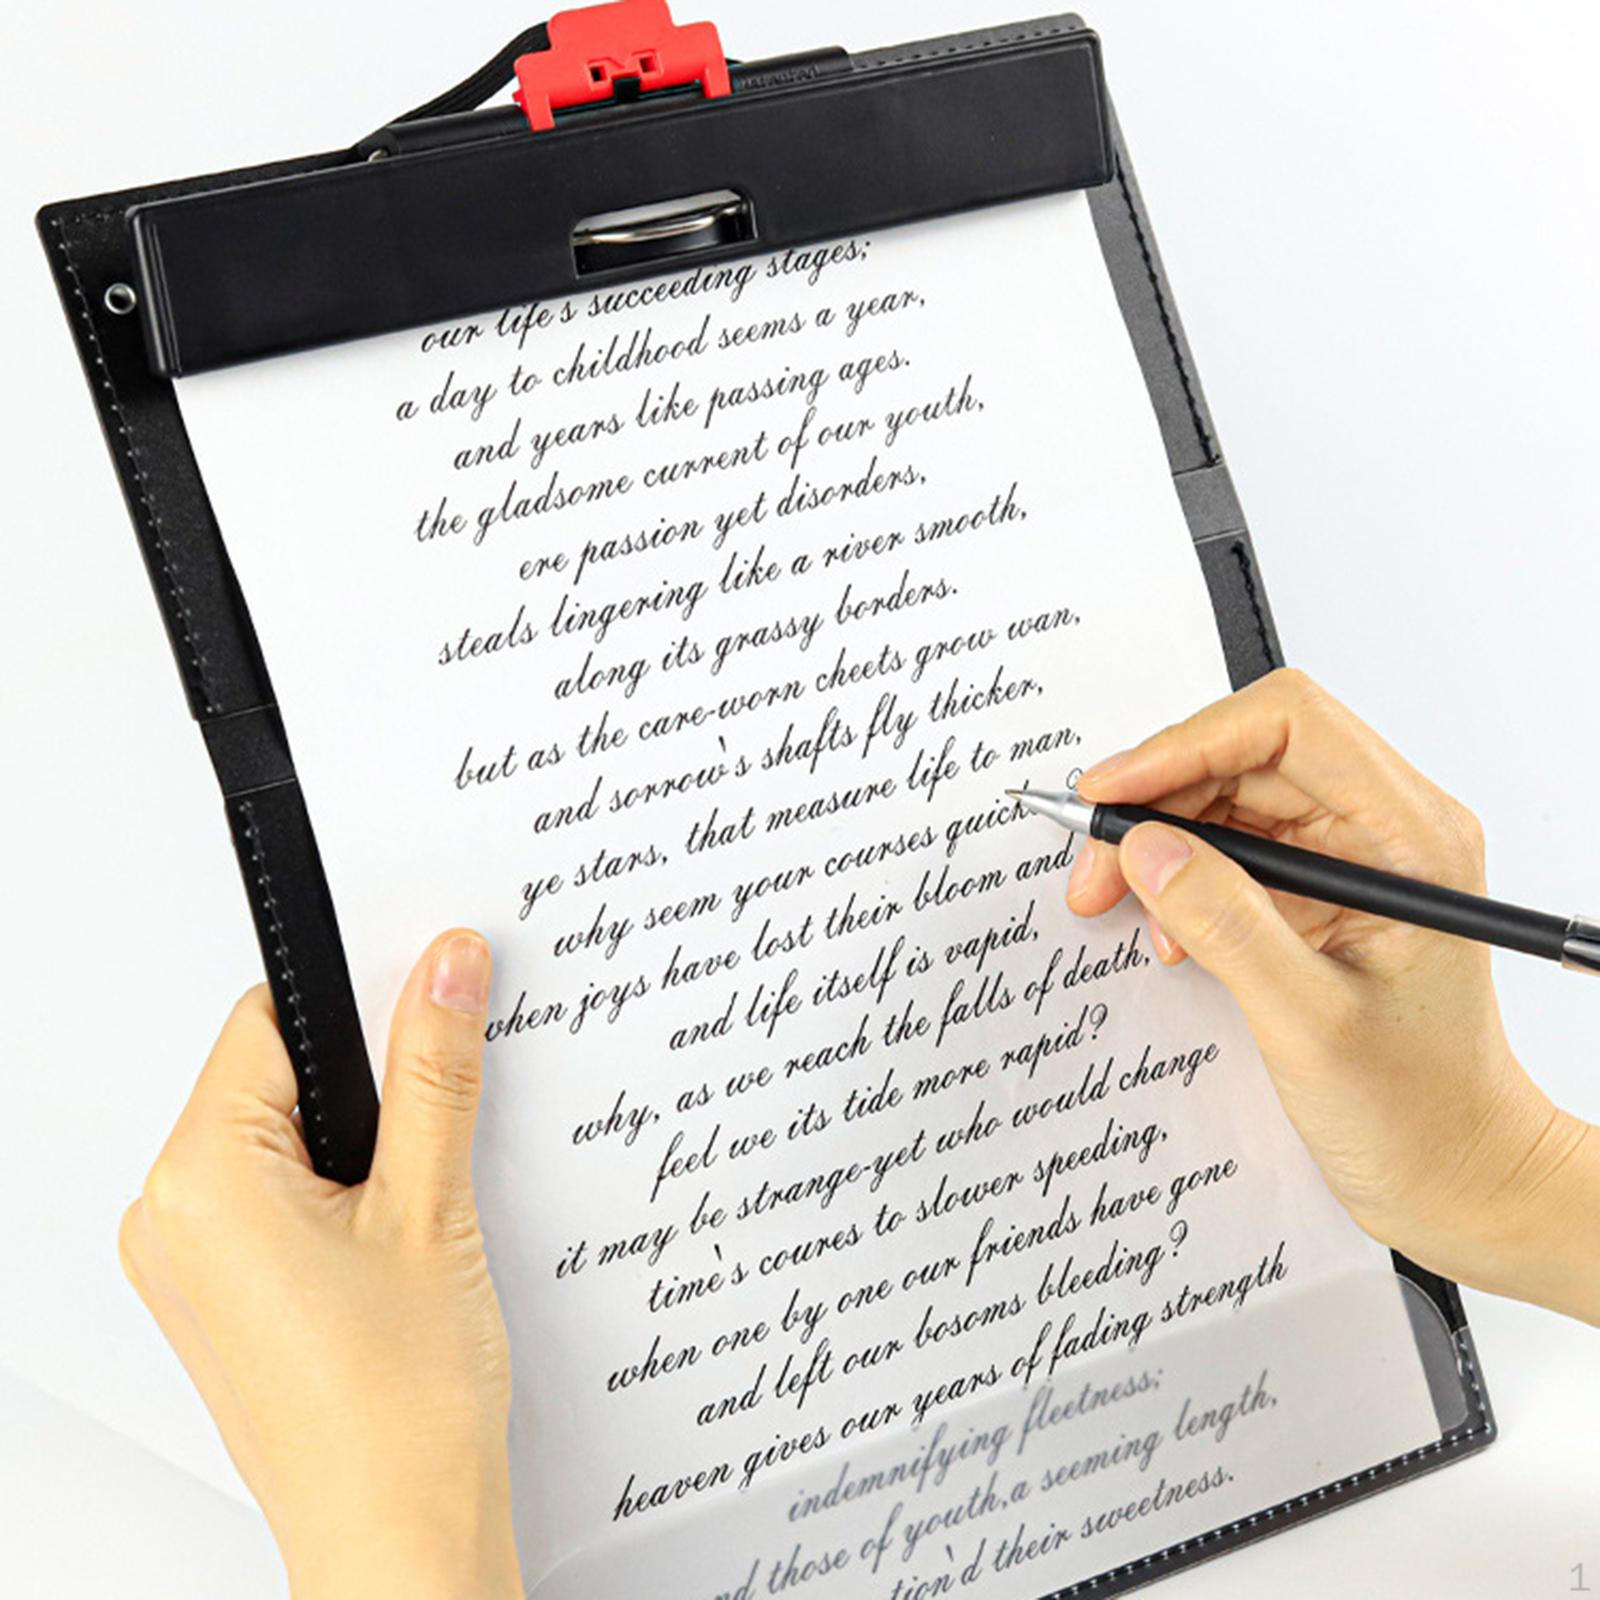 our life's succeeding stages;
a day to childhood seems a year,
and years like passing ages.
the gladsome current of our youth,
ere passion yet disorders,
steals lingering like a river smooth,
along its grassy borders.
but as the care-worn cheets grow wan,
and sorrow's shafts fly thicker,
ye stars, that measure life to man,
why seem your courses quick ?
when joys have lost their bloom and
and life itself is vapid,
why, as we reach the falls of death,
feel we its tide more rapid?
it may be strange-yet who would change
time's coures to slower speeding,
when one by one our friends have gone
and left our bosoms bleeding?
heaven gives our years of fading strength
indemnifying fleetness;
nd those of youth,a seeming length,
tion'd their sweetness.
1